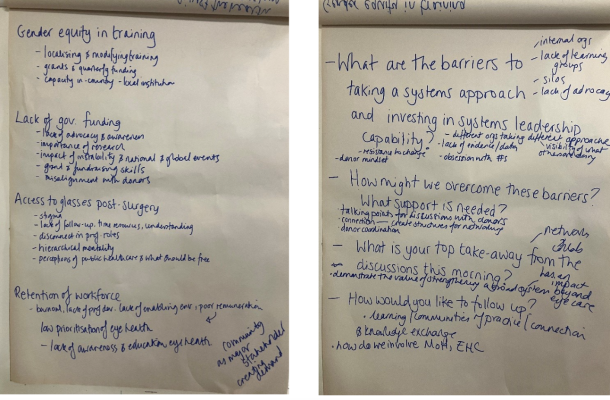 Gender equity in training
- localising & modifying training
- grants & quarterly funding
- capacity in-country - local institution
Lack of gov. funding
- lack of advocacy & awareness
- importance of research
- impact of instability & national & global events
- grant & fundraising skills
- misalignment with donors
Access to glasses post-surgery
- stigma
- lack of follow-up, time, understanding
- disconnect in prof. roles
- hierarchical mentality
- perceptions of public healthcare & what should be free
Retention of workforce
- burnout, lack of prof dev. lack of enabling env. poor remuneration
low prioritisation of eye health
- lack of awareness & education, eye health
community
as major
stakeholder
demand
- What are the barriers to
taking a systems approach
and investing in systems leadership
capability?
- internal orgs
- lack of learning
groups
- silos
- lack of advocacy
- different orgs taking different approaches
- lack of evidence/data
visibility of what
others are doing
- resistance to change
- obsession with #s
- donor mindset
- How might we overcome these barriers?
What support is needed?
talking points for discussions with donors
connection - create structures for networking
donor coordination
- What is your top take-away from the
discussions this morning?
network
has an
impact
beyond
eye care
- demonstrate the value of strengthening a system
- How would you like to follow up?
• learning/communities of practice/connection
& knowledge exchange
• how do we involve MoH, EHC